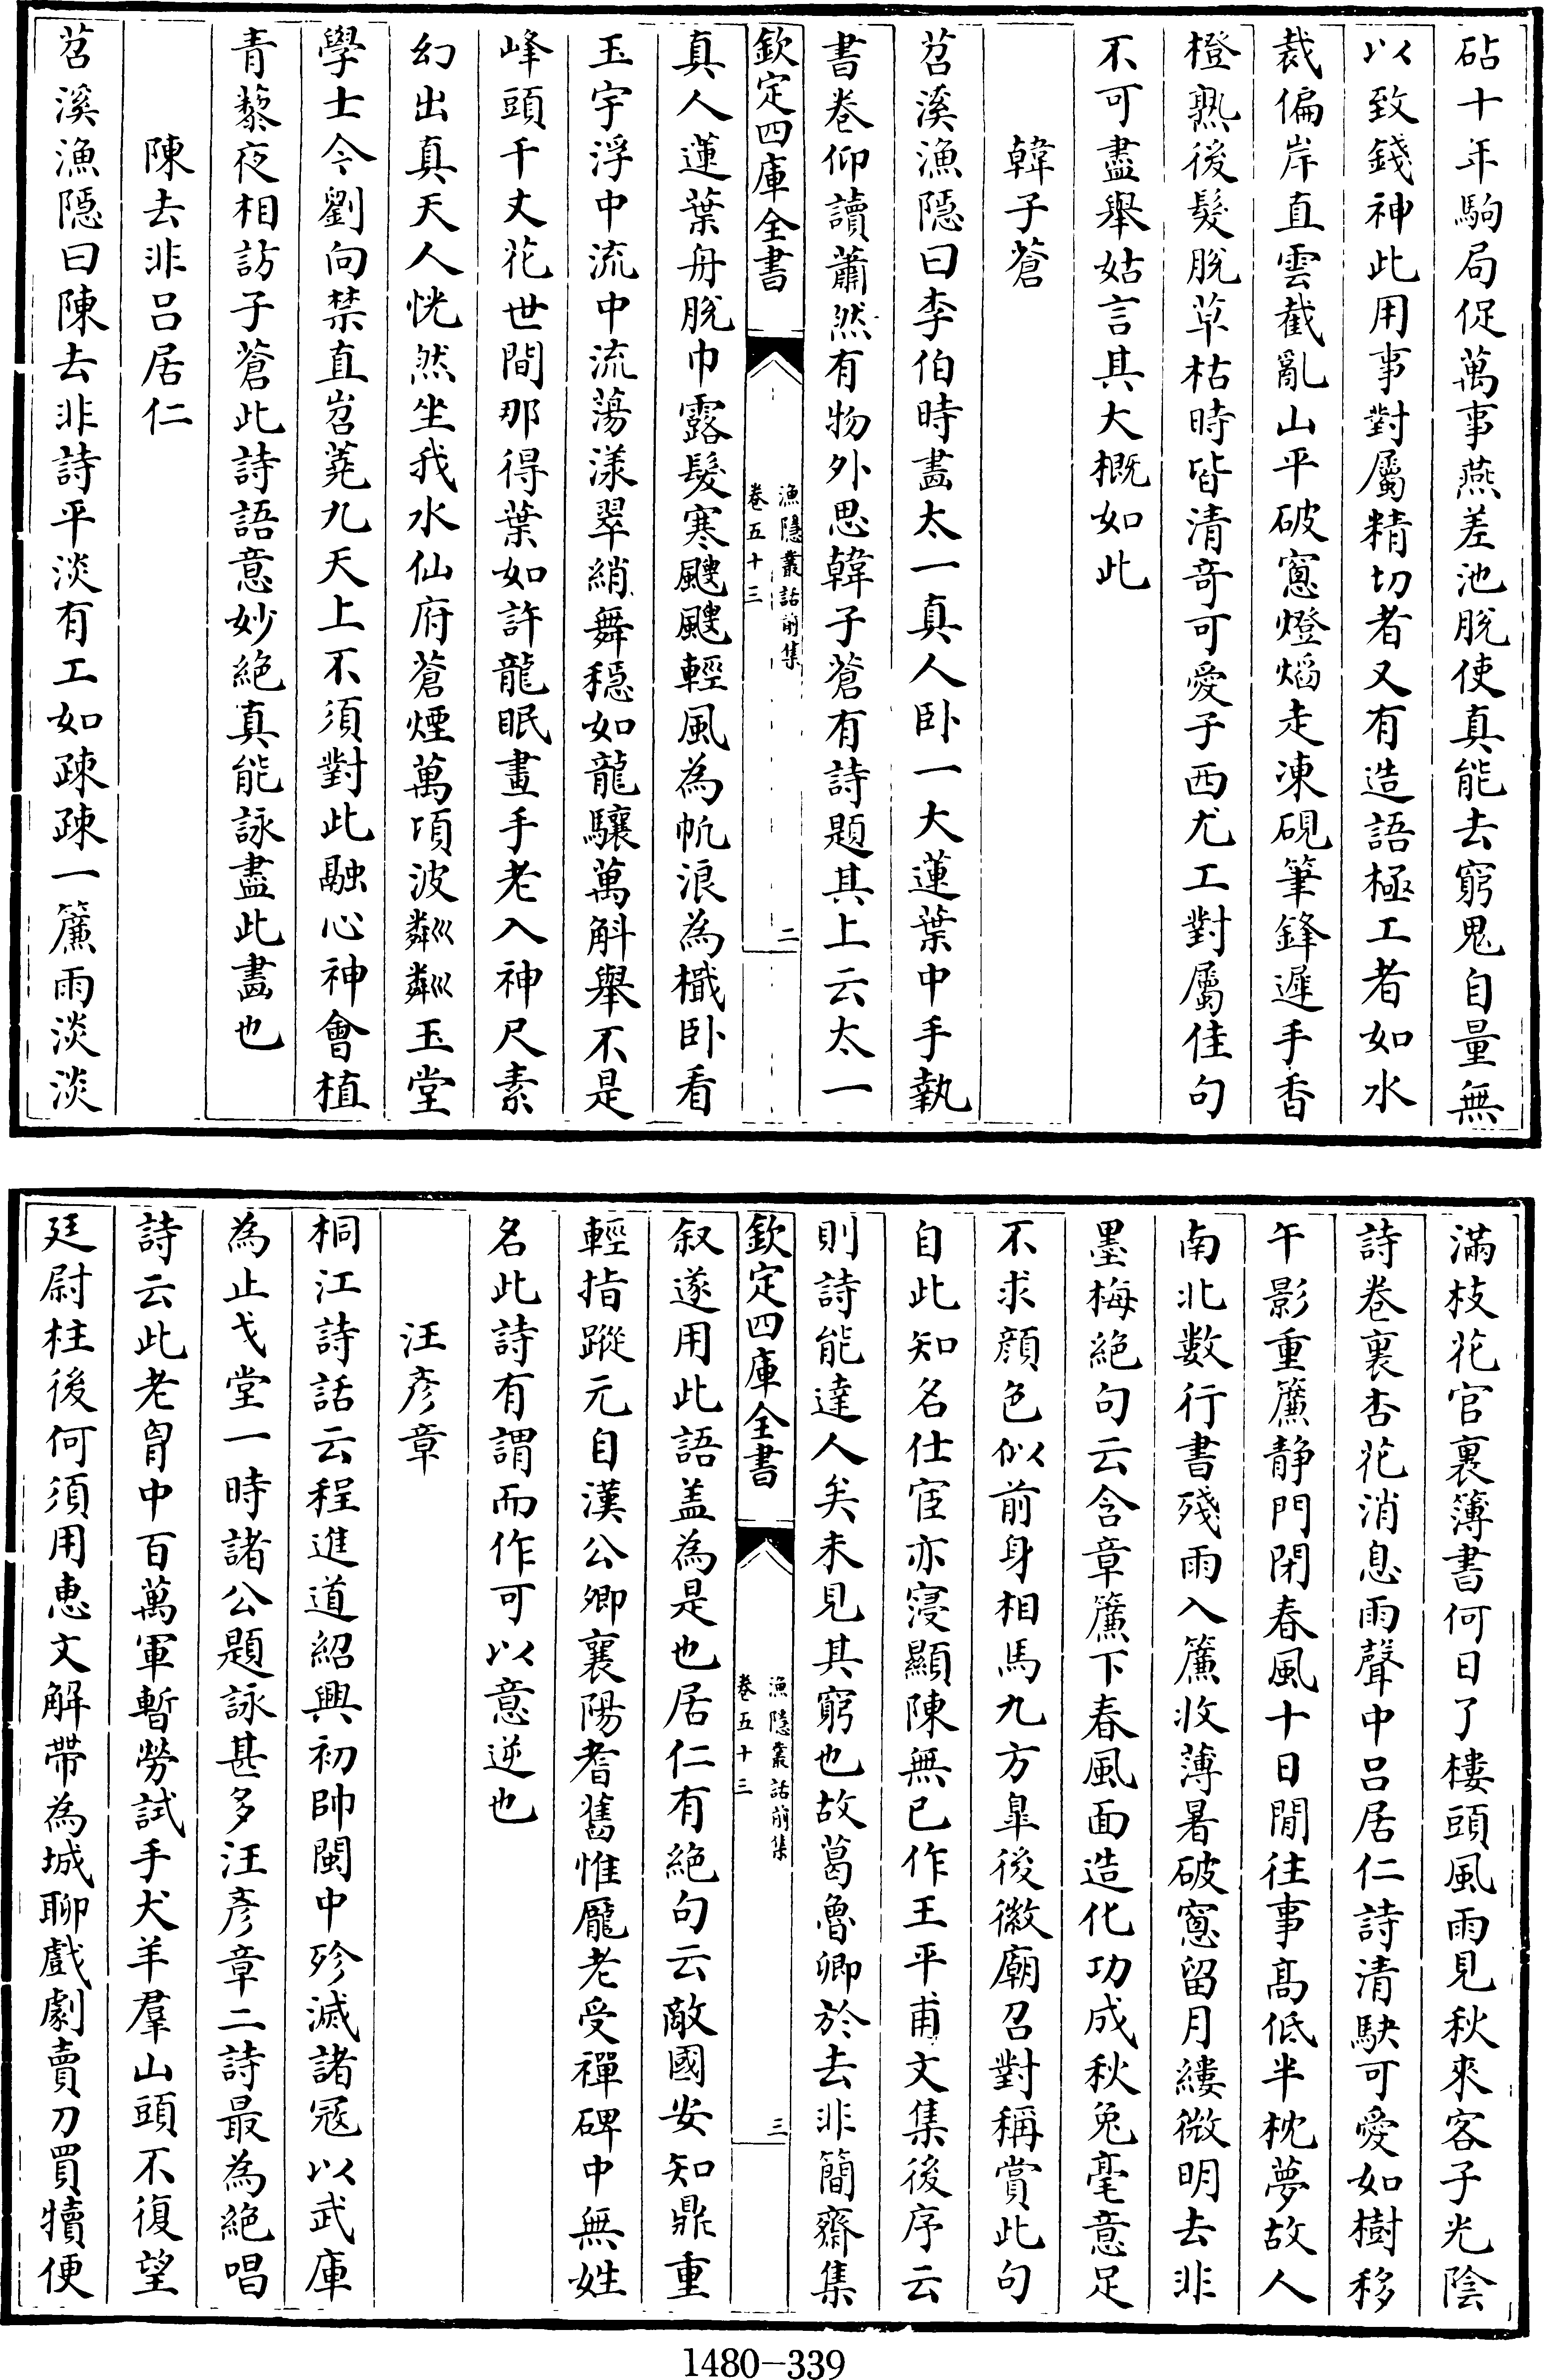 砧十年駒局促萬事燕差池脫使真能去窮鬼自量無
以致錢神此用事對屬精切者又有造語極工者如水
裁偏岸直雲截亂山平破窻燈熖走凍硯筆鋒遲手香
橙熟後髮脫草枯時皆清竒可愛子西尤工對屬佳句
不可盡舉姑言其大概如此
韓子蒼
苕溪漁隱曰李伯時畫太一真人卧一大蓮葉中手執
書卷仰讀蕭然有物外思韓子蒼有詩題其上云太一
欽定四庫全書
漁隱叢話前集
卷五十三
二
真人蓮葉舟脫巾露髮寒颼颼輕風為帆浪為檝卧看
玉宇浮中流中流蕩漾翠綃舞穩如龍驤萬斛舉不是
峰頭千丈花世間那得葉如許龍眠畫手老入神尺素
幻出真天人恍然坐我水仙府蒼煙萬頃波粼粼玉堂
學士今劉向禁直岧蕘九天上不須對此融心神會植
青藜夜相訪子蒼此詩語意妙絶真能詠盡此畫也
陳去非吕居仁
苕溪漁隱曰陳去非詩平淡有工如疎疎一簾雨淡淡
滿枝花官裏簿書何日了樓頭風雨見秋來客子光陰
詩卷裏杏花消息雨聲中吕居仁詩清駃可愛如樹移
午影重簾静門閉春風十日閒往事髙低半枕夢故人
南北數行書殘雨入簾收薄暑破窻留月縷微明去非
墨梅絶句云含章簾下春風面造化功成秋兔毫意足
不求顔色似前身相馬九方臯後徽廟召對稱賞此句
自此知名仕宦亦寖顯陳無已作王平甫文集後序云
則詩能達人矣未見其窮也故葛魯卿於去非簡齋集
欽定四庫全書
漁隱叢話前集
卷五十三
三
叙遂用此語盖為是也居仁有絶句云敵國安知鼎重
輕指蹤元自漢公卿襄陽耆舊惟龎老受禪碑中無姓
名此詩有謂而作可以意逆也
汪彦章
桐江詩話云程進道紹興初帥閩中殄滅諸冦以武庫
為止戈堂一時諸公題詠甚多汪彦章二詩最為絶唱
詩云此老胷中百萬軍暫勞試手犬羊羣山頭不復望
廷尉柱後何須用惠文解帶為城聊戲劇賣刀買犢便
1480-339